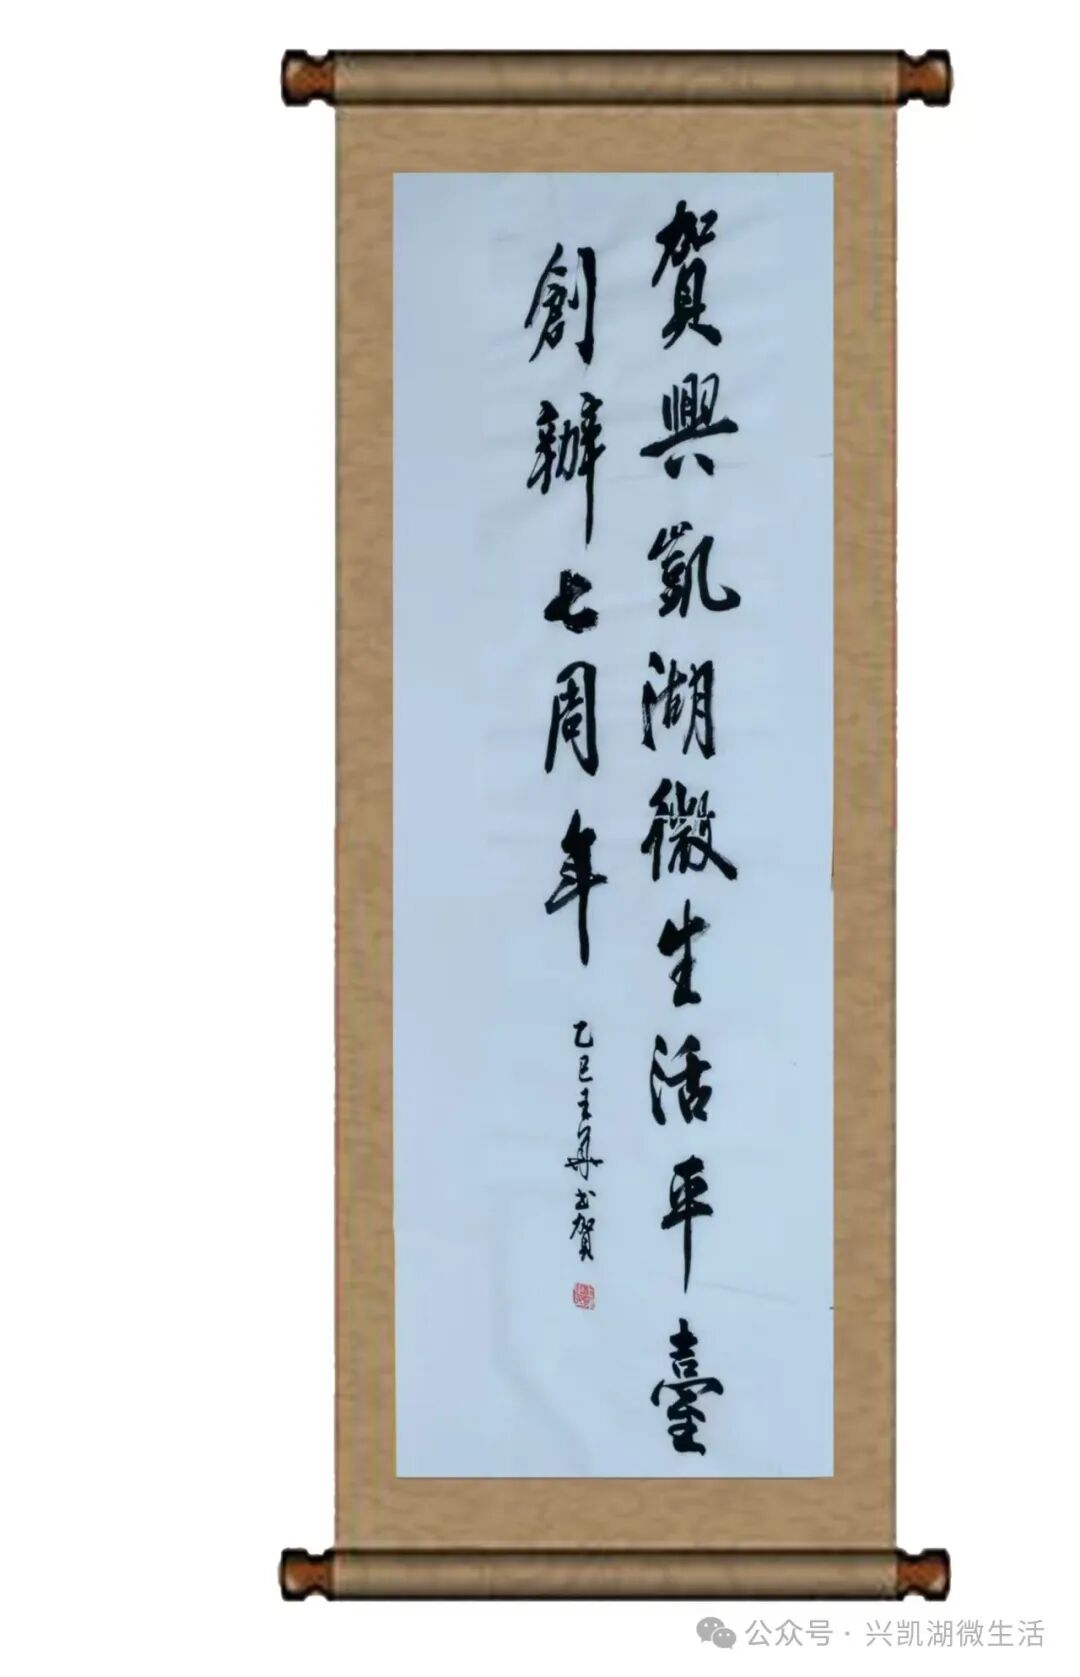 賀興凱湖微生活平臺
創辦七周年
乙巳王華书賀
公众号 · 兴凯湖微生活